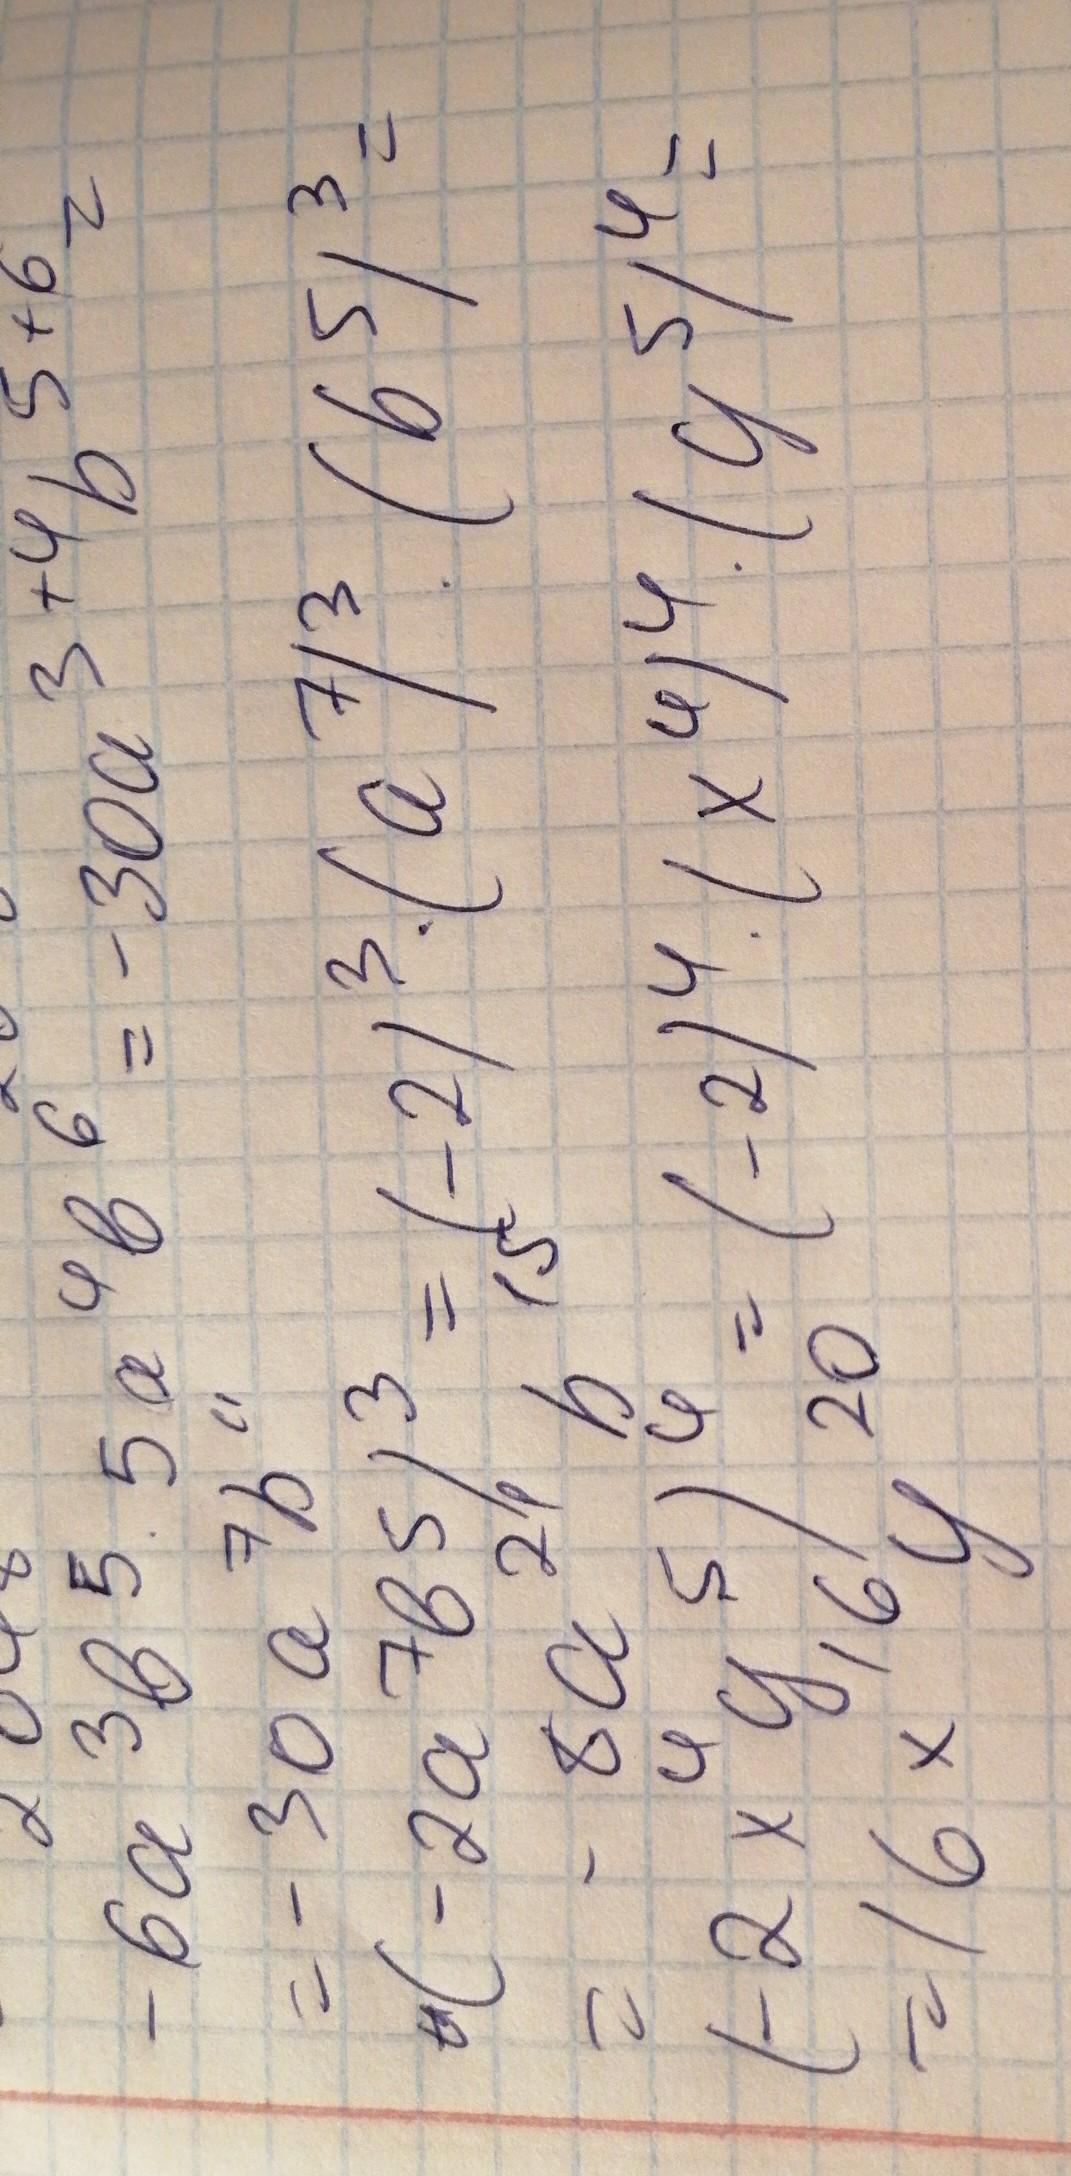 -6a³b⁵·5a⁴b⁶=-30a³⁺⁴b⁵⁺⁶=
=-30a⁷b¹¹
(-2a⁷b⁵)³=(-2)³·(a⁷)³·(b⁵)³=
=-8a²¹b¹⁵
(-2x⁴y⁵)⁴=(-2)⁴·(x⁴)⁴·(y⁵)⁴=
=16x¹⁶y²⁰